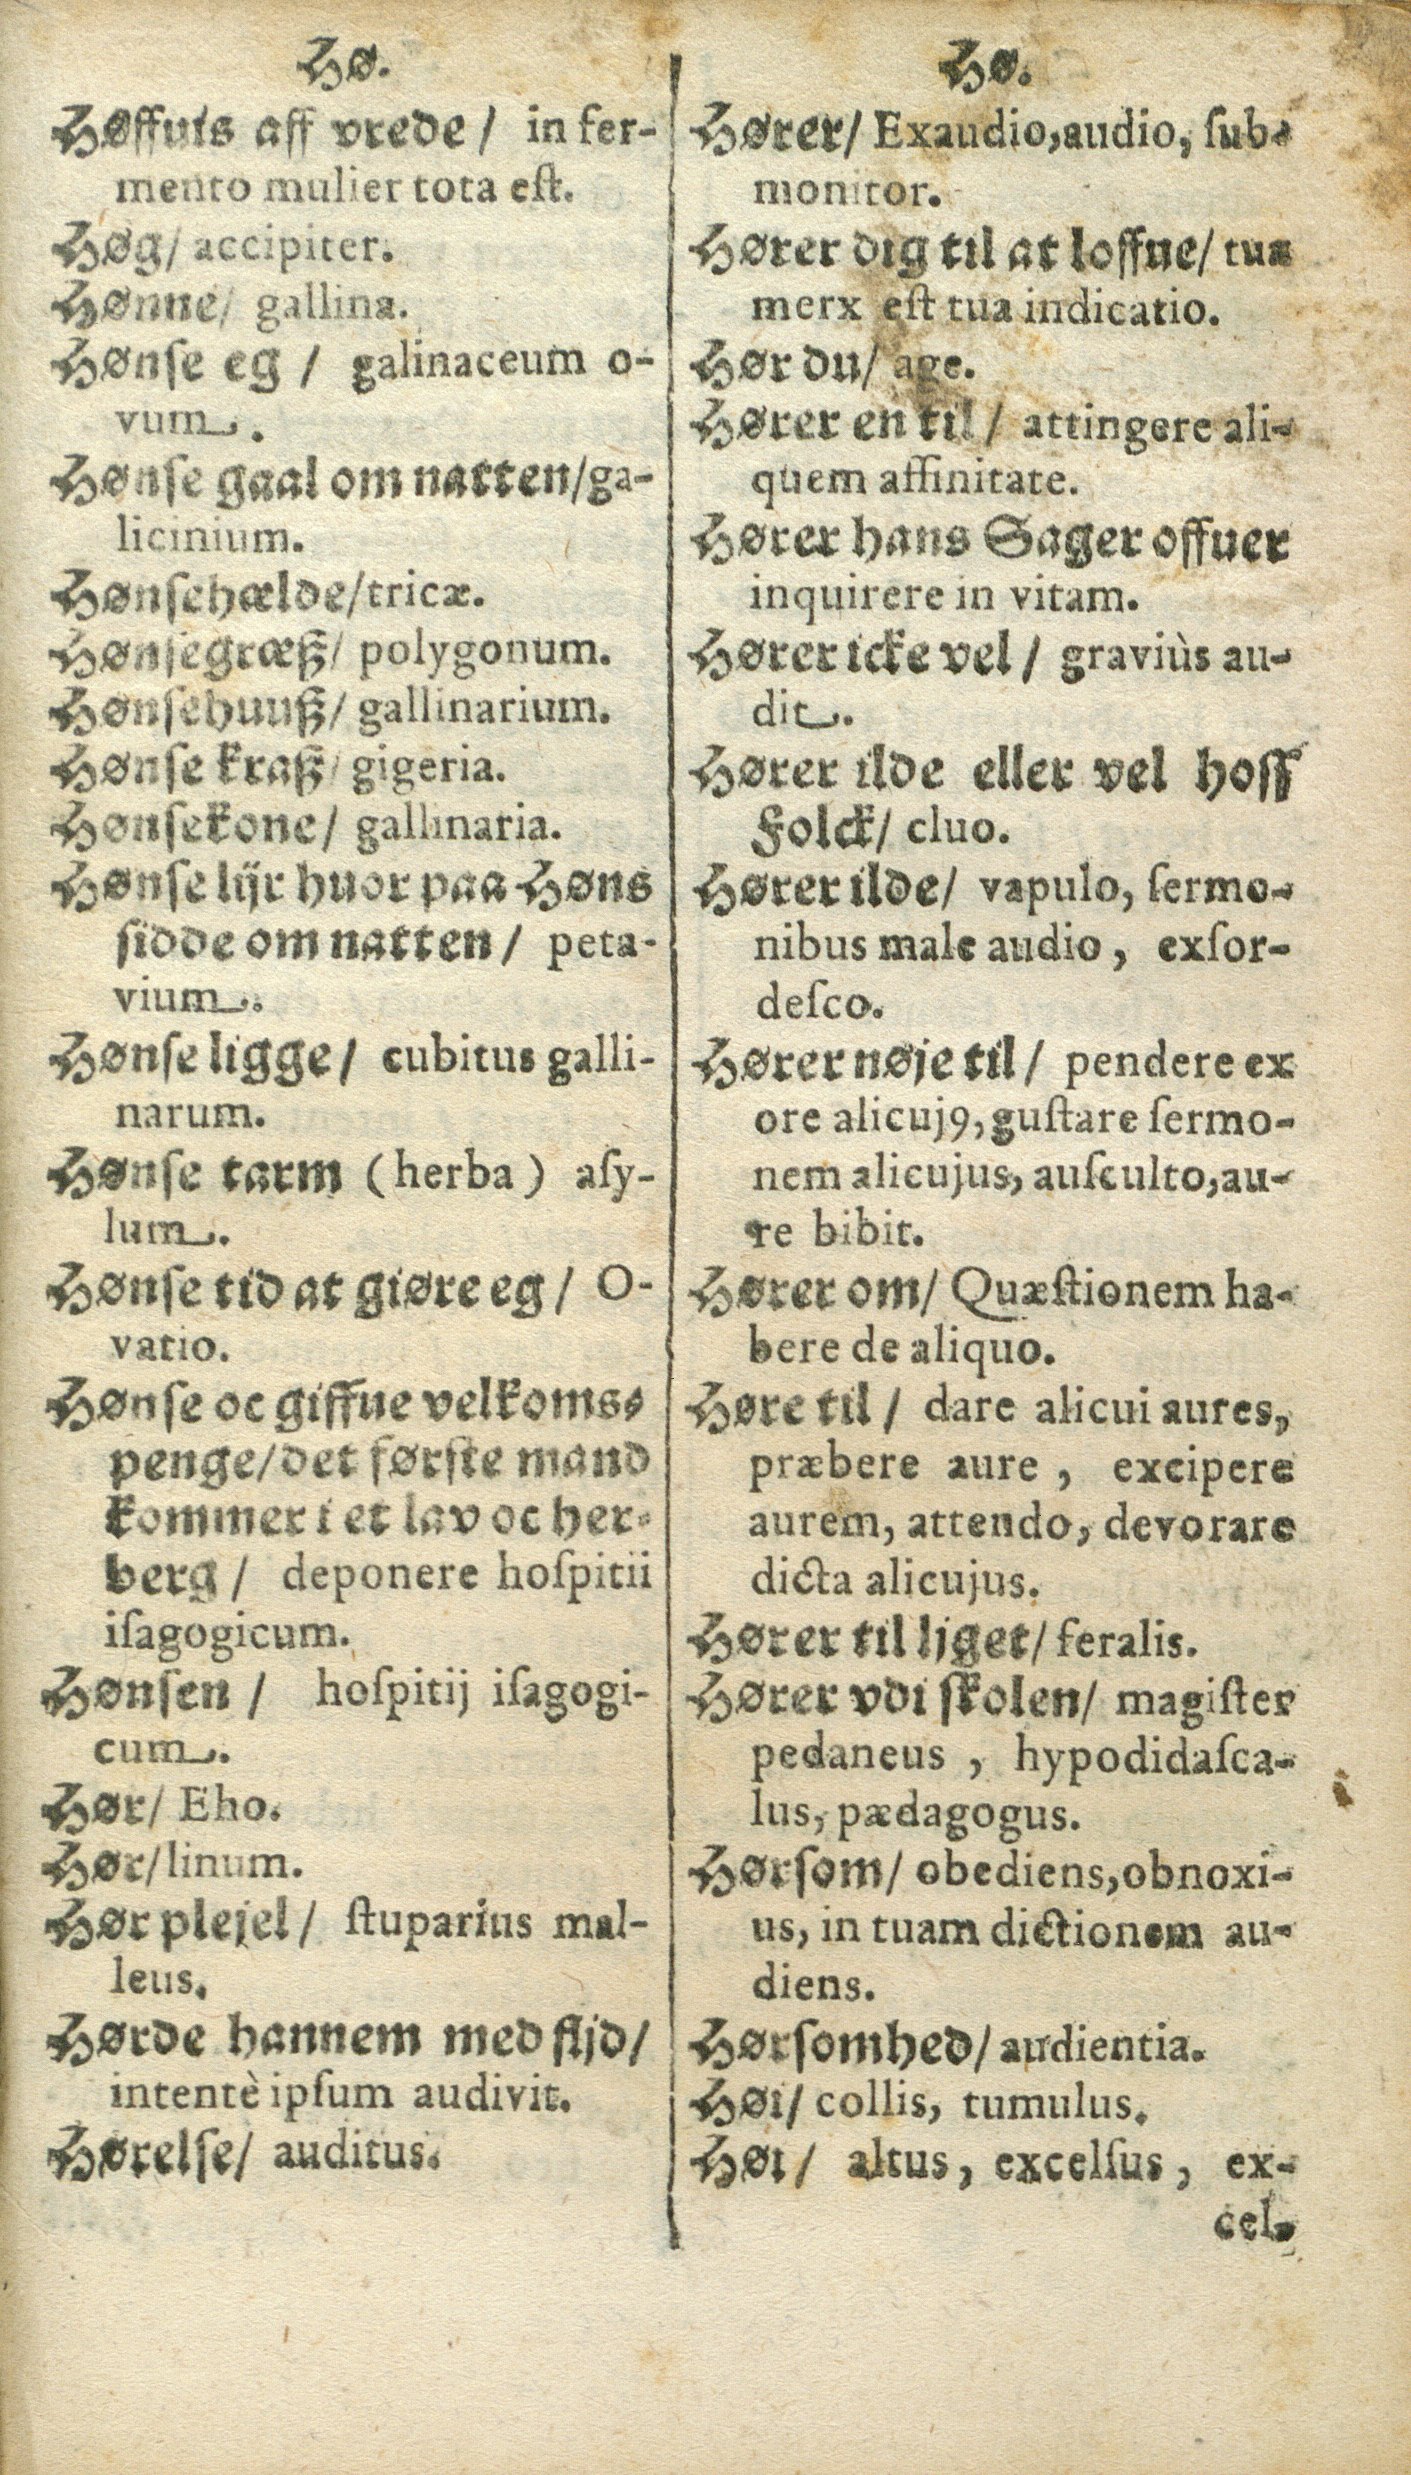 Hø.
Høffuis aff vrede / in fer-
mento mulier tota eſt.
Høg / accipiter.
Hønne / gallina.
Hønſe eg / galinaceum o-
vum.
Hønſe gaal om natten / ga-
licinium.
Hønſehælde / tricæ.
Hønſegræß / polygonum.
Hønſehuuß / gallinarium.
Hønſe kraß / gigeria.
Hønſekone / gallinaria.
Hønſe lijr huor paa Høns
ſidde om natten / peta-
vium.
Hønſe ligge / cubitus galli-
narum.
Hønſe tarm (herba) aſy-
lum.
Hønſe tid at giøre eg / O-
vatio.
Hønſe oc giffue velkoms-
penge / det førſte mand
kommer i et lav oc her-
berg / deponere hoſpitii
iſagogicum.
Hønſen / hoſpitij iſagogi-
cum.
Hør / Eho.
Hør / linum.
Hør plejel / ſtuparius mal-
leus.
Hørde hannem med fljd /
intentè ipſum audivit.
Hørelſe / auditus.
Hø.
Hører / Exaudio, audio, ſub-
monitor.
Hører dig til at loffue / tua
merx eſt tua indicatio.
Hør du / age.
Hører en til / attingere ali-
quem affinitate.
Hører hans Sager offuer
inquirere in vitam.
Hører icke vel / graviùs au-
dit.
Hører ilde eller vel hoſſ
Folck / cluo.
Hører ilde / vapulo, ſermo-
nibus male audio, exſor-
deſco.
Hører nøje til / pendere ex
ore alicuj9, guſtare ſermo-
nem alicujus, auſculto, au-
re bibit.
Hører om / Quæſtionem ha-
bere de aliquo.
Høre til / dare alicui aures,
præbere aure, excipere
aurem, attendo, devorare
dicta alicujus.
Hører til ljget / feralis.
Hører vdi ſkolen / magiſter
pedaneus, hypodidaſca-
lus, pædagogus.
Hørſom / obediens, obnoxi-
us, in tuam dictionem au-
diens.
Hørſomhed / audientia.
Høi / collis, tumulus.
Høi / altus, excelſus, ex-
cel-